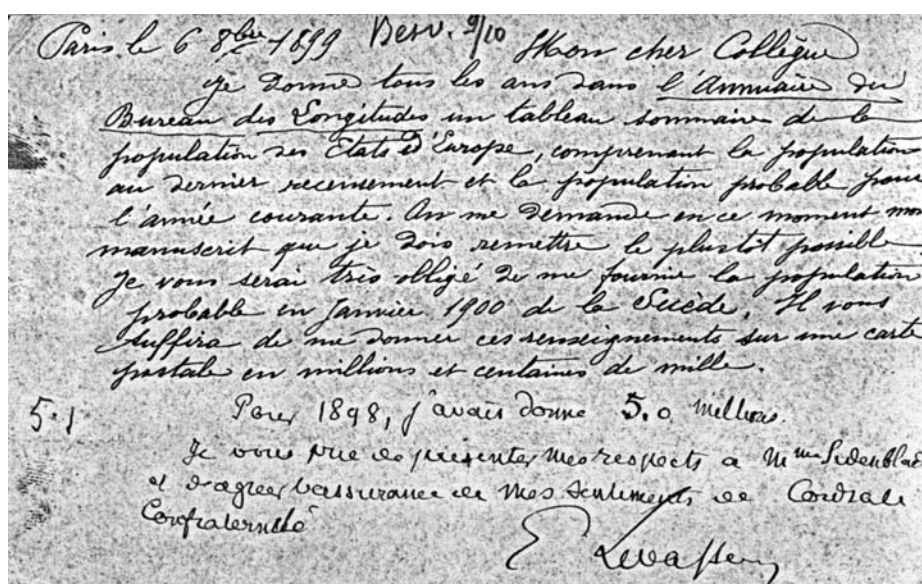 Paris le 6 8bre 1899 Besv. 9/10 Mon cher Collègue
Je donne tous les ans dans l'Annuaire du
Bureau des Longitudes un tableau sommaire de la
population des Etats d'Europe, comprenant la population
au dernier recensement et la population probable pour
l'année courante. On me demande en ce moment mon
manuscrit que je dois remettre le plustôt possible.
Je vous serai très obligé de me fournir la population
probable en Janvier 1900 de la Suède. Il vous
suffira de me donner ces renseignements sur une carte
postale en millions et centaines de mille.
Pour 1898, j'avais donné 5.0 millions.
5.1
Je vous prie de présenter mes respects a Mme Sidenblad
et d'agréer l'assurance de mes sentiments de Cordiale
Confraternité
E Levasseur